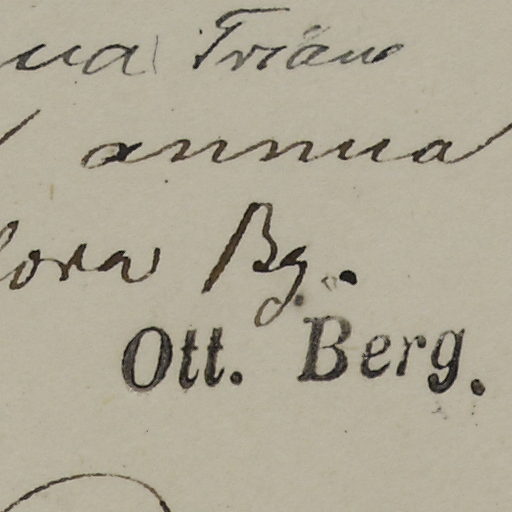 ua Triana
annua
lora Bg.
Ott. Berg.